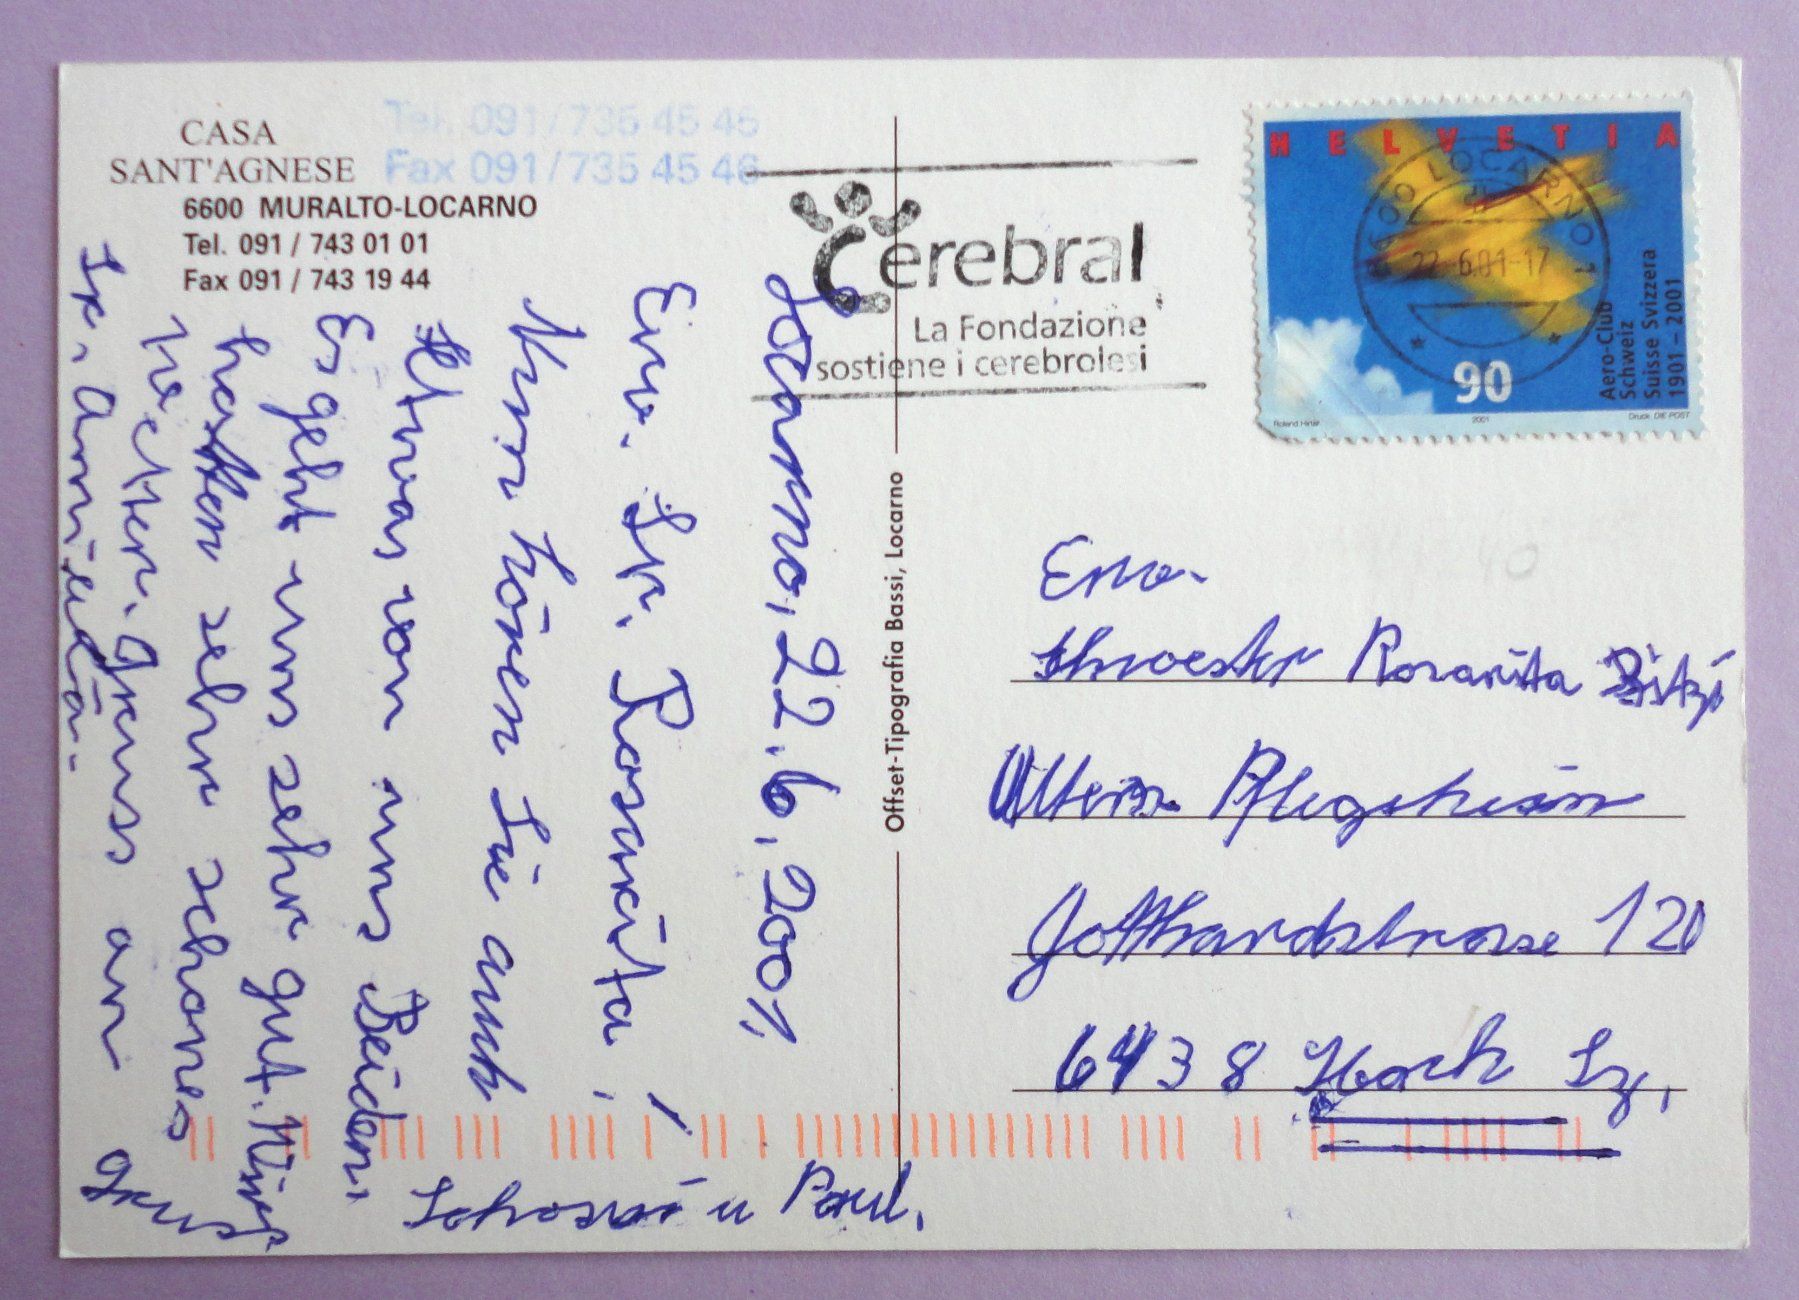 CASA
SANT'AGNESE
6600 MURALTO-LOCARNO
Tel. 091 / 743 01 01
Fax 091 / 743 19 44
Tel. 091/735 45 45
Fax 091/735 45 46
Cerebral
La Fondazione
sostiene i cerebrolesi
HELVETIA
6600 LOCARNO 1
22-6.01-17
90
Aero-Club
Schweiz
Suisse Svizzera
1901 – 2001
2001
Druck: DIE POST
Locarno, 22.6.2001,
Erw. Sr. Rosarita,!
Nun hören Sie auch
Etwas von uns Beiden,
Es geht uns sehr gut. Wir
hatten sehr schönes
Wetter. Gruss an
Sr. Amieda.
Gruss
u Paul.
Offset-Tipografia Bassi, Locarno
Erw.
Schwester Rosarita Bitzi
Alters Pflegeheim
Gotthardstrasse 120
6438 Ibach Sz,